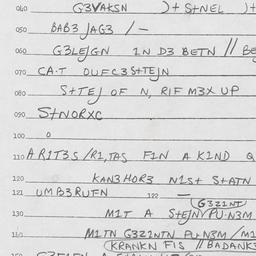 040 G3VAKSN )+ S+NEL )+
050 BAB3 JAG3 / –
060 G3LEJGN IN D3 BETN // BE
070 CA·T OUFC3S+EJN
080 S+TEJ OF N, RIF M3X UP
090 S+NORXC
100 0
110 ARIT3S /RI,TAS FIN A KIND Q
120 KAN3HOR3 NIST S+ATN
121 UMB3RUFN 122 — G3ZINT
130 MIT A S+EJN/PU·N3M
140 MITN G3ZINTN PU·N3M /MI
(KRANKN FIS //BADANK3